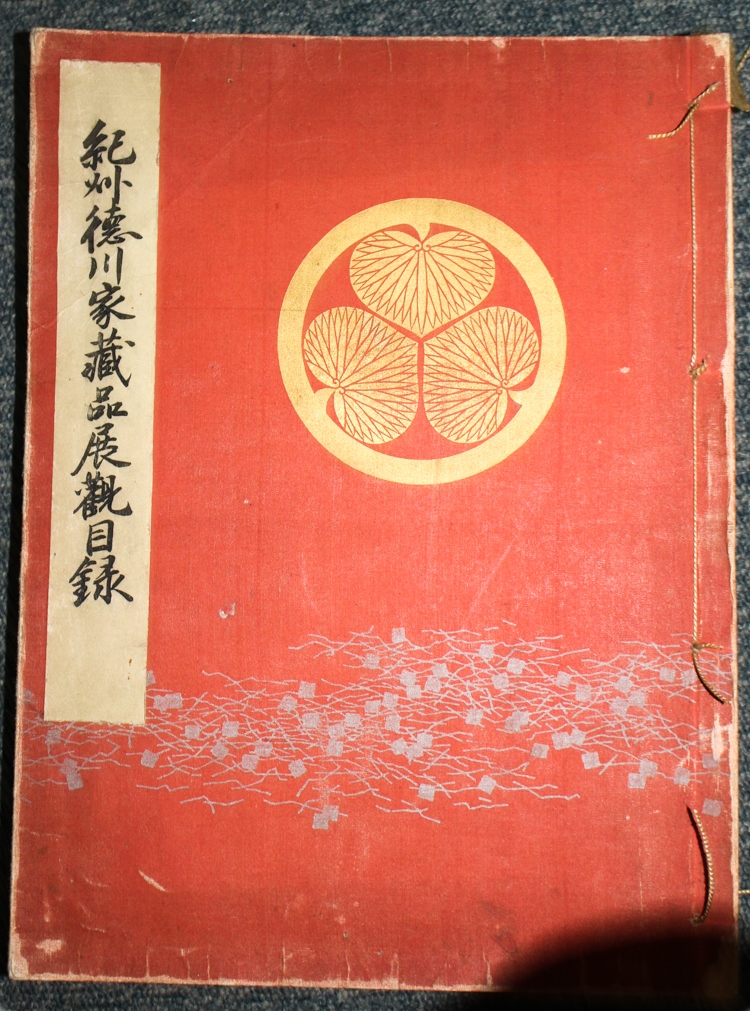 紀州德川家藏品展觀目録